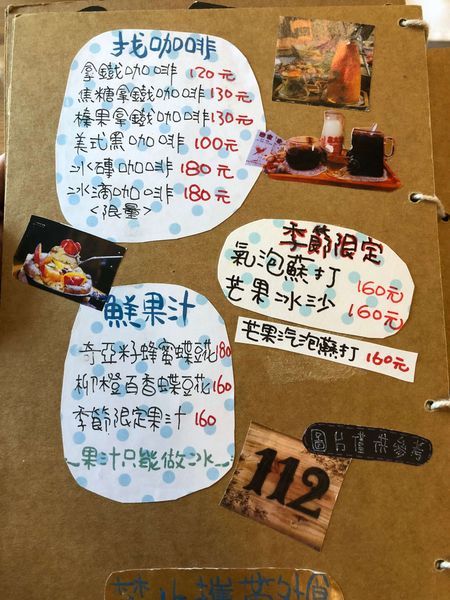 找咖啡
拿鐵咖啡 120元
焦糖拿鐵咖啡 130元
榛果拿鐵咖啡 130元
美式黑咖啡 100元
冰磚咖啡 180元
冰滴咖啡 180元
<限量>
季節限定
氣泡蘇打 160元
芒果冰沙 160元
芒果汽泡蘇打 160元
鮮果汁
奇亞籽蜂蜜蝶豆花 180
柳橙百香蝶豆花 160
季節限定果汁 160
~果汁只能做冰~
圖片僅供參考
112
禁止攜帶外食